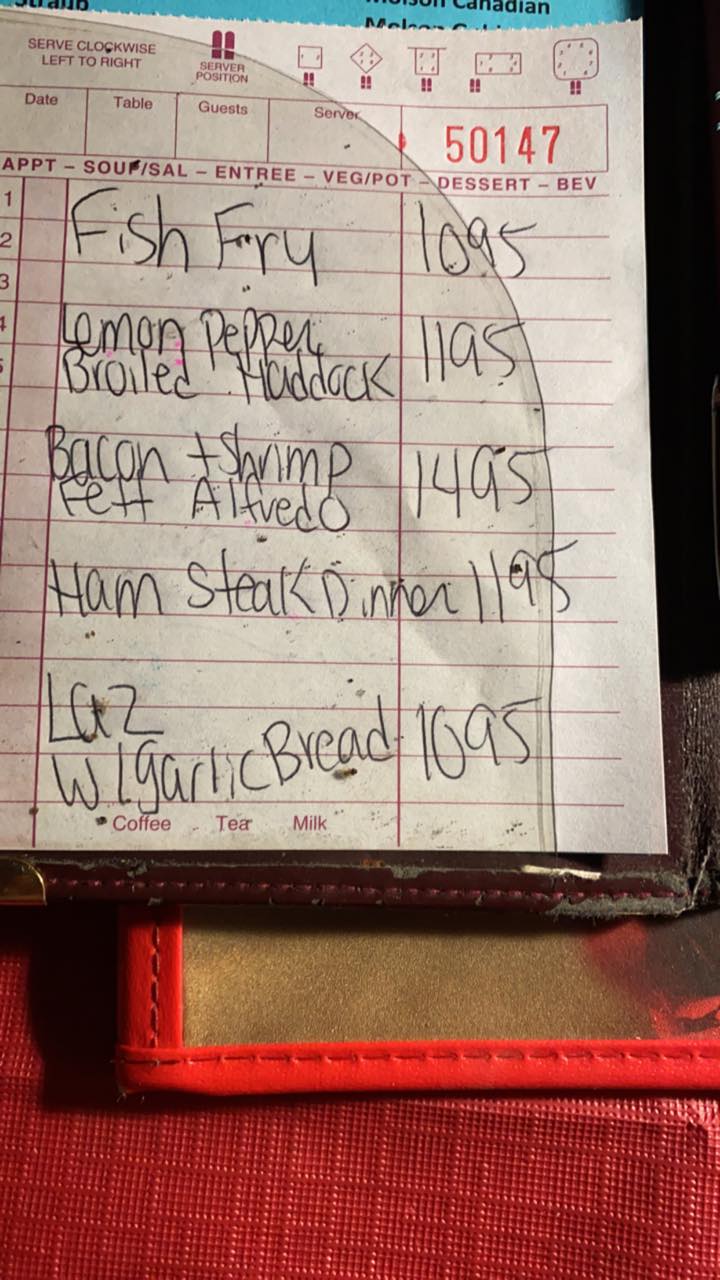 Straub
Molson Canadian
SERVE CLOCKWISE
LEFT TO RIGHT
SERVER
POSITION
Date Table Guests Server
50147
APPT – SOUP/SAL – ENTREE – VEG/POT – DESSERT – BEV
1
2 Fish Fry 1095
3
4 Lemon Pepper
5 Broiled Haddock 1195
Bacon + Shrimp
Fett Alfredo 1495
Ham Steak Dinner 1195
LaZ
W/garlic Bread 1095
Coffee Tea Milk